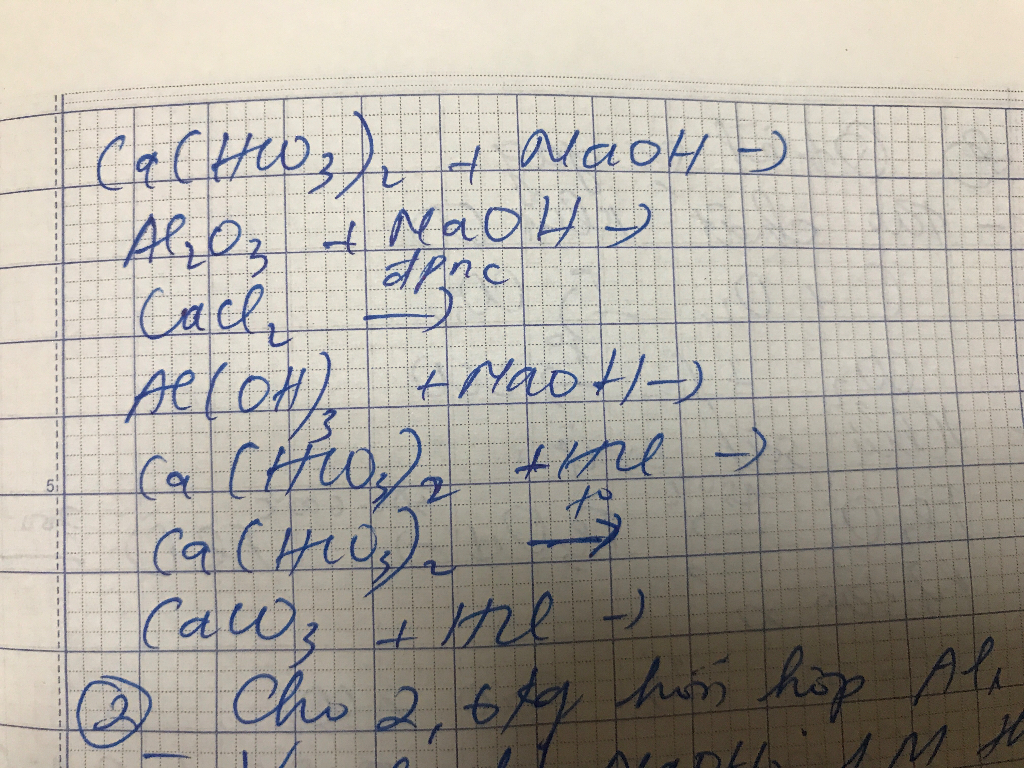 Ca(HCO₃)₂ + NaOH →
Al₂O₃ + NaOH →
CaCl₂ đpnc →
Al(OH)₃ + NaOH →
Ca(HCO₃)₂ + HCl →
Ca(HCO₃)₂ t° →
CaCO₃ + HCl →
5
② Cho 2,6 hỗn hợp Al,
NaOH 1M